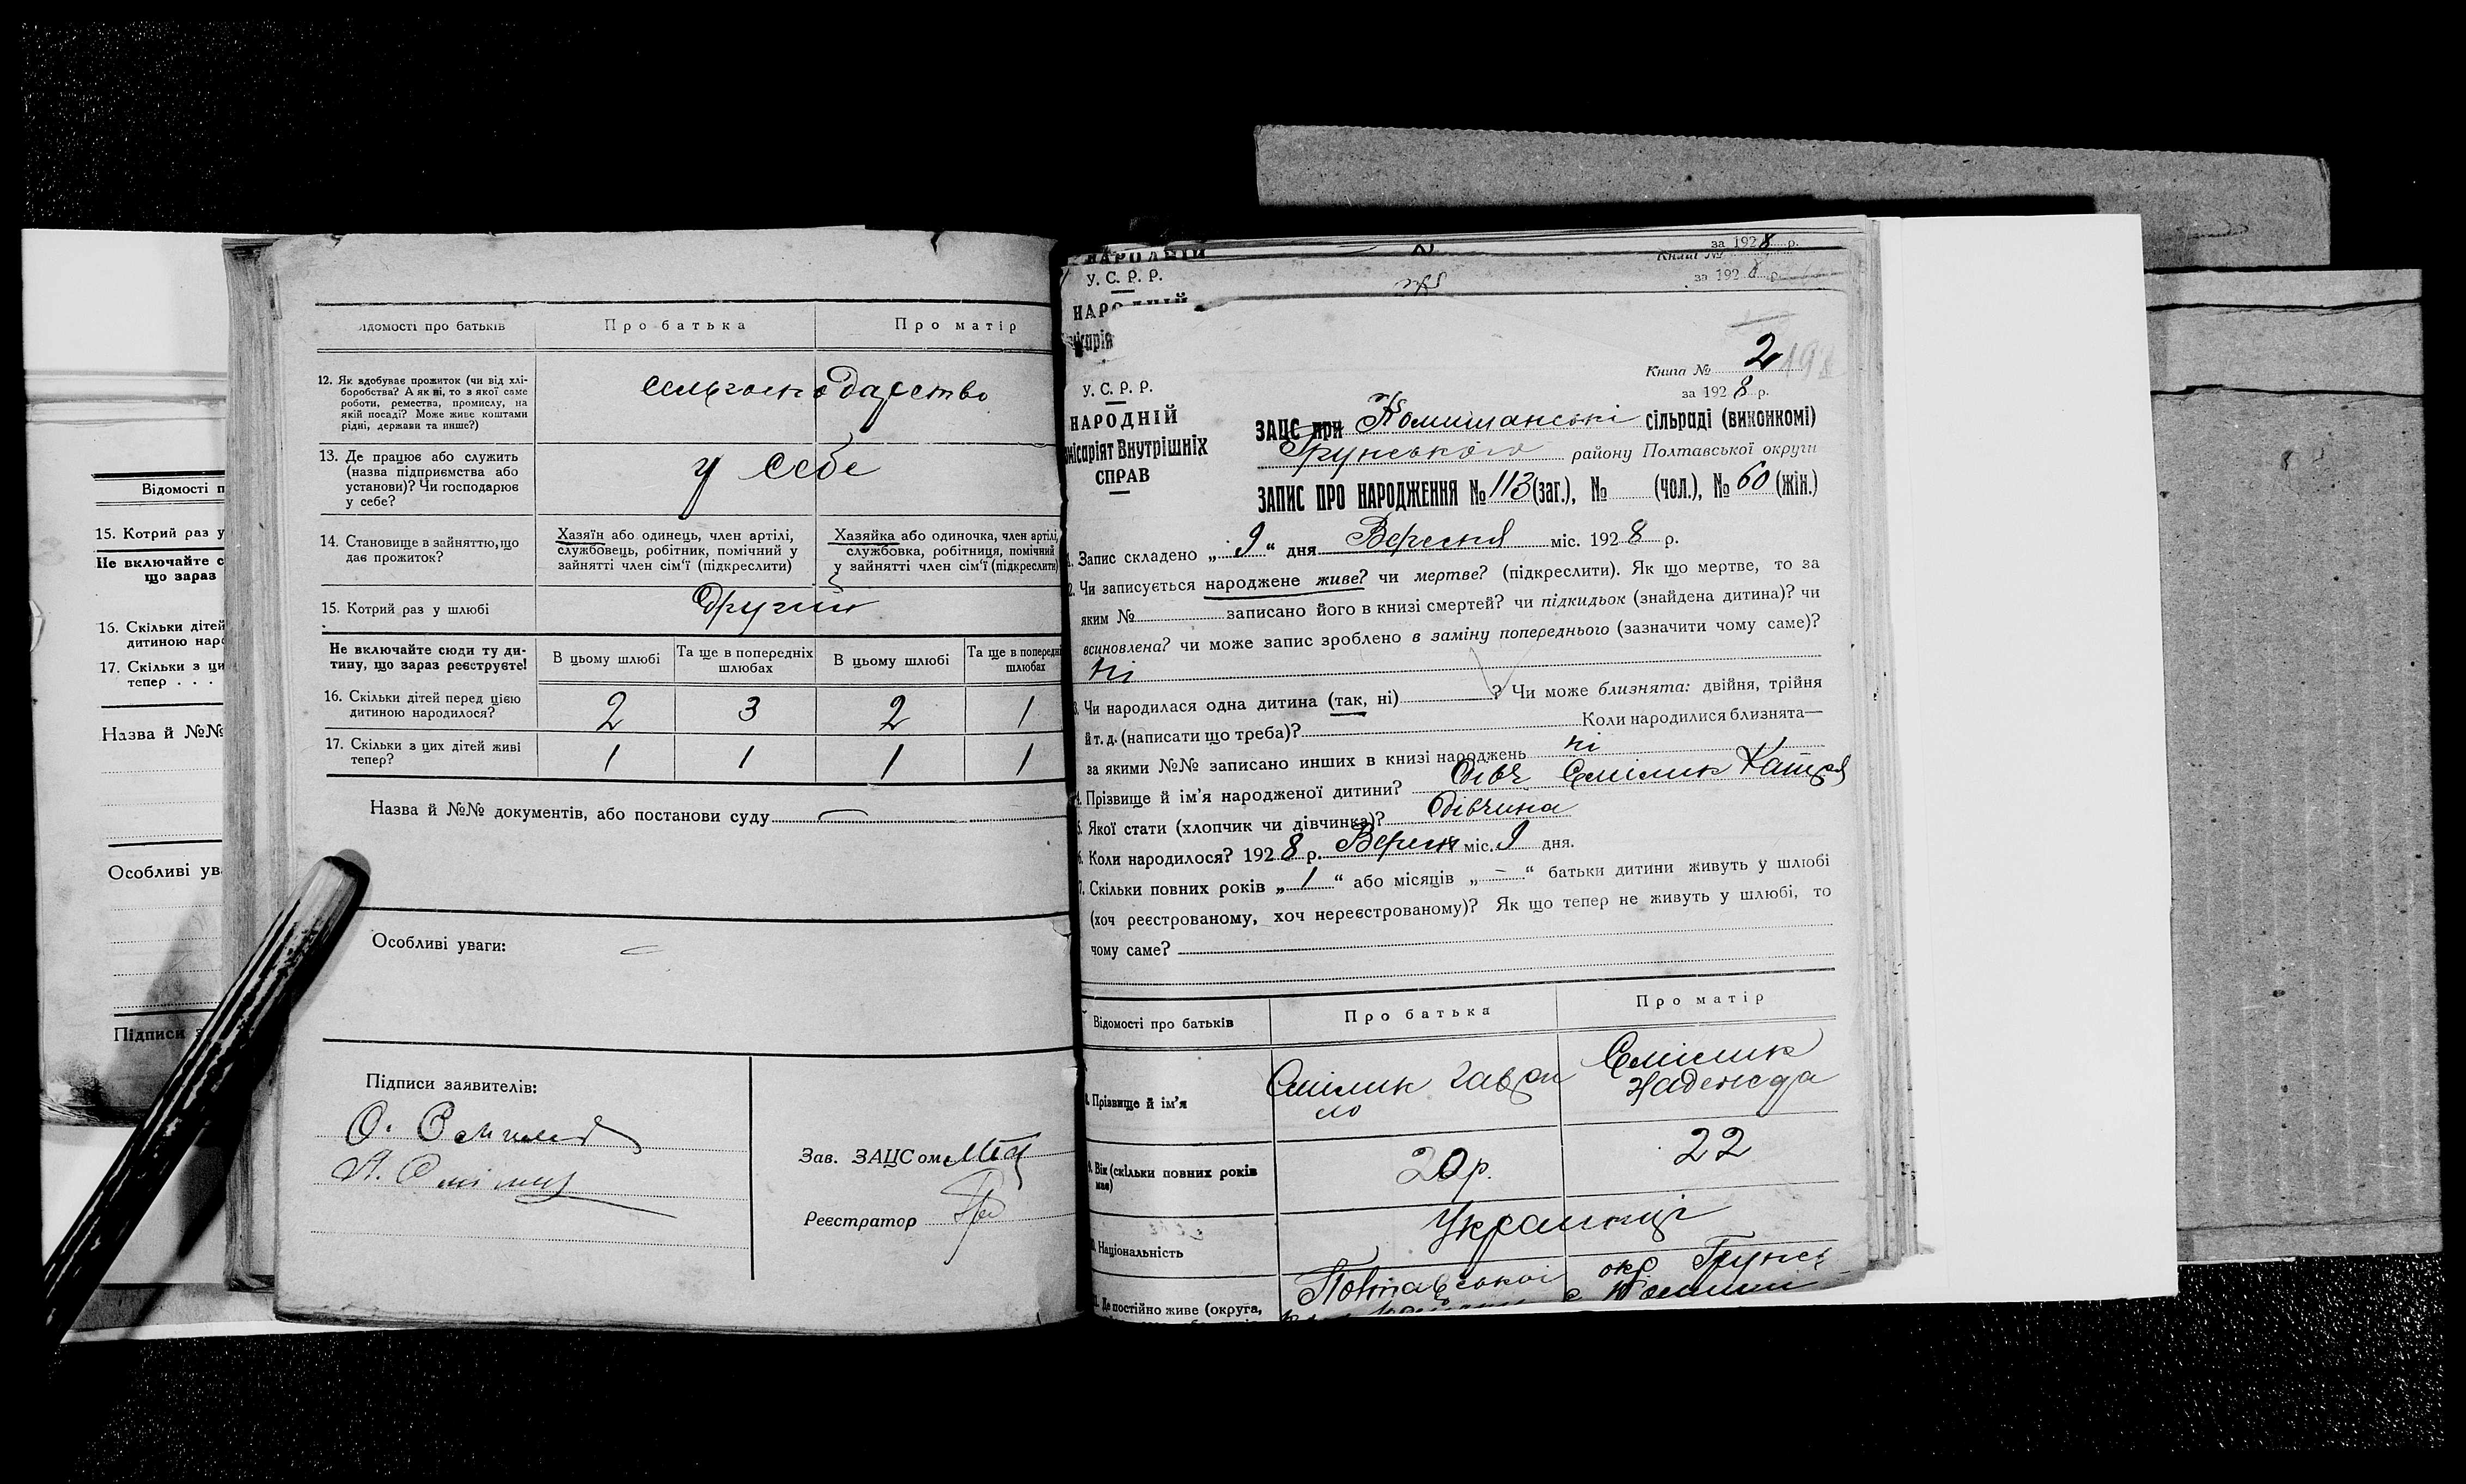 Відомості п
15. Котрий раз у
Не включайте с
що зараз
16. Скільки дітей
дитиною наро
17. Скільки з ци
тепер . . .
Назва й №№
Особливі ува
Підписи з
ідомості про батьків
Про батька
Про матір
12. Як здобуває прожиток (чи від хлі-
боробства? А як ні, то з якої саме
роботи, ремества, промислу, на
якій посаді? Може живе коштами
рідні, держави та инше?)
сельгосподарство
13. Де працює або служить
(назва підприємства або
установи)? Чи господарює
у себе?
у себе
14. Становище в зайняттю, що
дає прожиток?
Хазяїн або одинець, член артілі,
службовець, робітник, помічний у
зайнятті член сім'ї (підкреслити)
Хазяйка або одиночка, член артілі,
службовка, робітниця, помічний
у зайнятті член сім'ї (підкреслити)
15. Котрий раз у шлюбі
Другий
Не включайте сюди ту ди-
тину, що зараз реєструєте!
В цьому шлюбі
Та ще в попередніх
шлюбах
В цьому шлюбі
Та ще в попередні
шлюбах
16. Скільки дітей перед цією
дитиною народилося?
2 3 2 1
17. Скільки з цих дітей живі
тепер?
1 1 1 1
Назва й №№ документів, або постанови суду
Особливі уваги:
Підписи заявителів:
Зав. ЗАЦСом
Реєстратор
НАРОДНІЙ
У. С. Р. Р.
за 1928 р.
Книга №
за 1928 р.
НАРОДНІЙ
Книга № 2
за 1928 р.
У. С. Р. Р.
НАРОДНІЙ
місаріят Внутрішніх
СПРАВ
ЗАЦС при Комишанські сільраді (виконкомі)
Грунського району Полтавської округи
ЗАПИС ПРО НАРОДЖЕННЯ № 113 (заг.), № (чол.), № 60 (жін.)
1. Запис складено „ 9 “ дня Вересня міс. 1928 р.
2. Чи записується народжене живе? чи мертве? (підкреслити). Як що мертве, то за
яким № записано його в книзі смертей? чи підкидьок (знайдена дитина)? чи
всиновлена? чи може запис зроблено в заміну попереднього (зазначити чому саме)?
Ні
3. Чи народилася одна дитина (так, ні) ? Чи може близнята: двійня, трійня
й т. д. (написати що треба)? Коли народилися близнята—
за якими №№ записано инших в книзі народжень ні
4. Прізвище й ім'я народженої дитини? Омілик Катря
5. Якої стати (хлопчик чи дівчинка)? Дівчина
6. Коли народилося? 1928 р. Вересн міс. 9 дня.
7. Скільки повних років „ 1 “ або місяців „ – “ батьки дитини живуть у шлюбі
(хоч реєстрованому, хоч нереєстрованому)? Як що тепер не живуть у шлюбі, то
чому саме?
Відомості про батьків
Про батька
Про матір
8. Прізвище й ім'я
Омілик Гаври
ло
Омілик
Надежда
9. Вік (скільки повних років
має)
20р.
22
10. Національність
Українці
11. Де постійно живе (округа,
Полтавської окр Грунсь